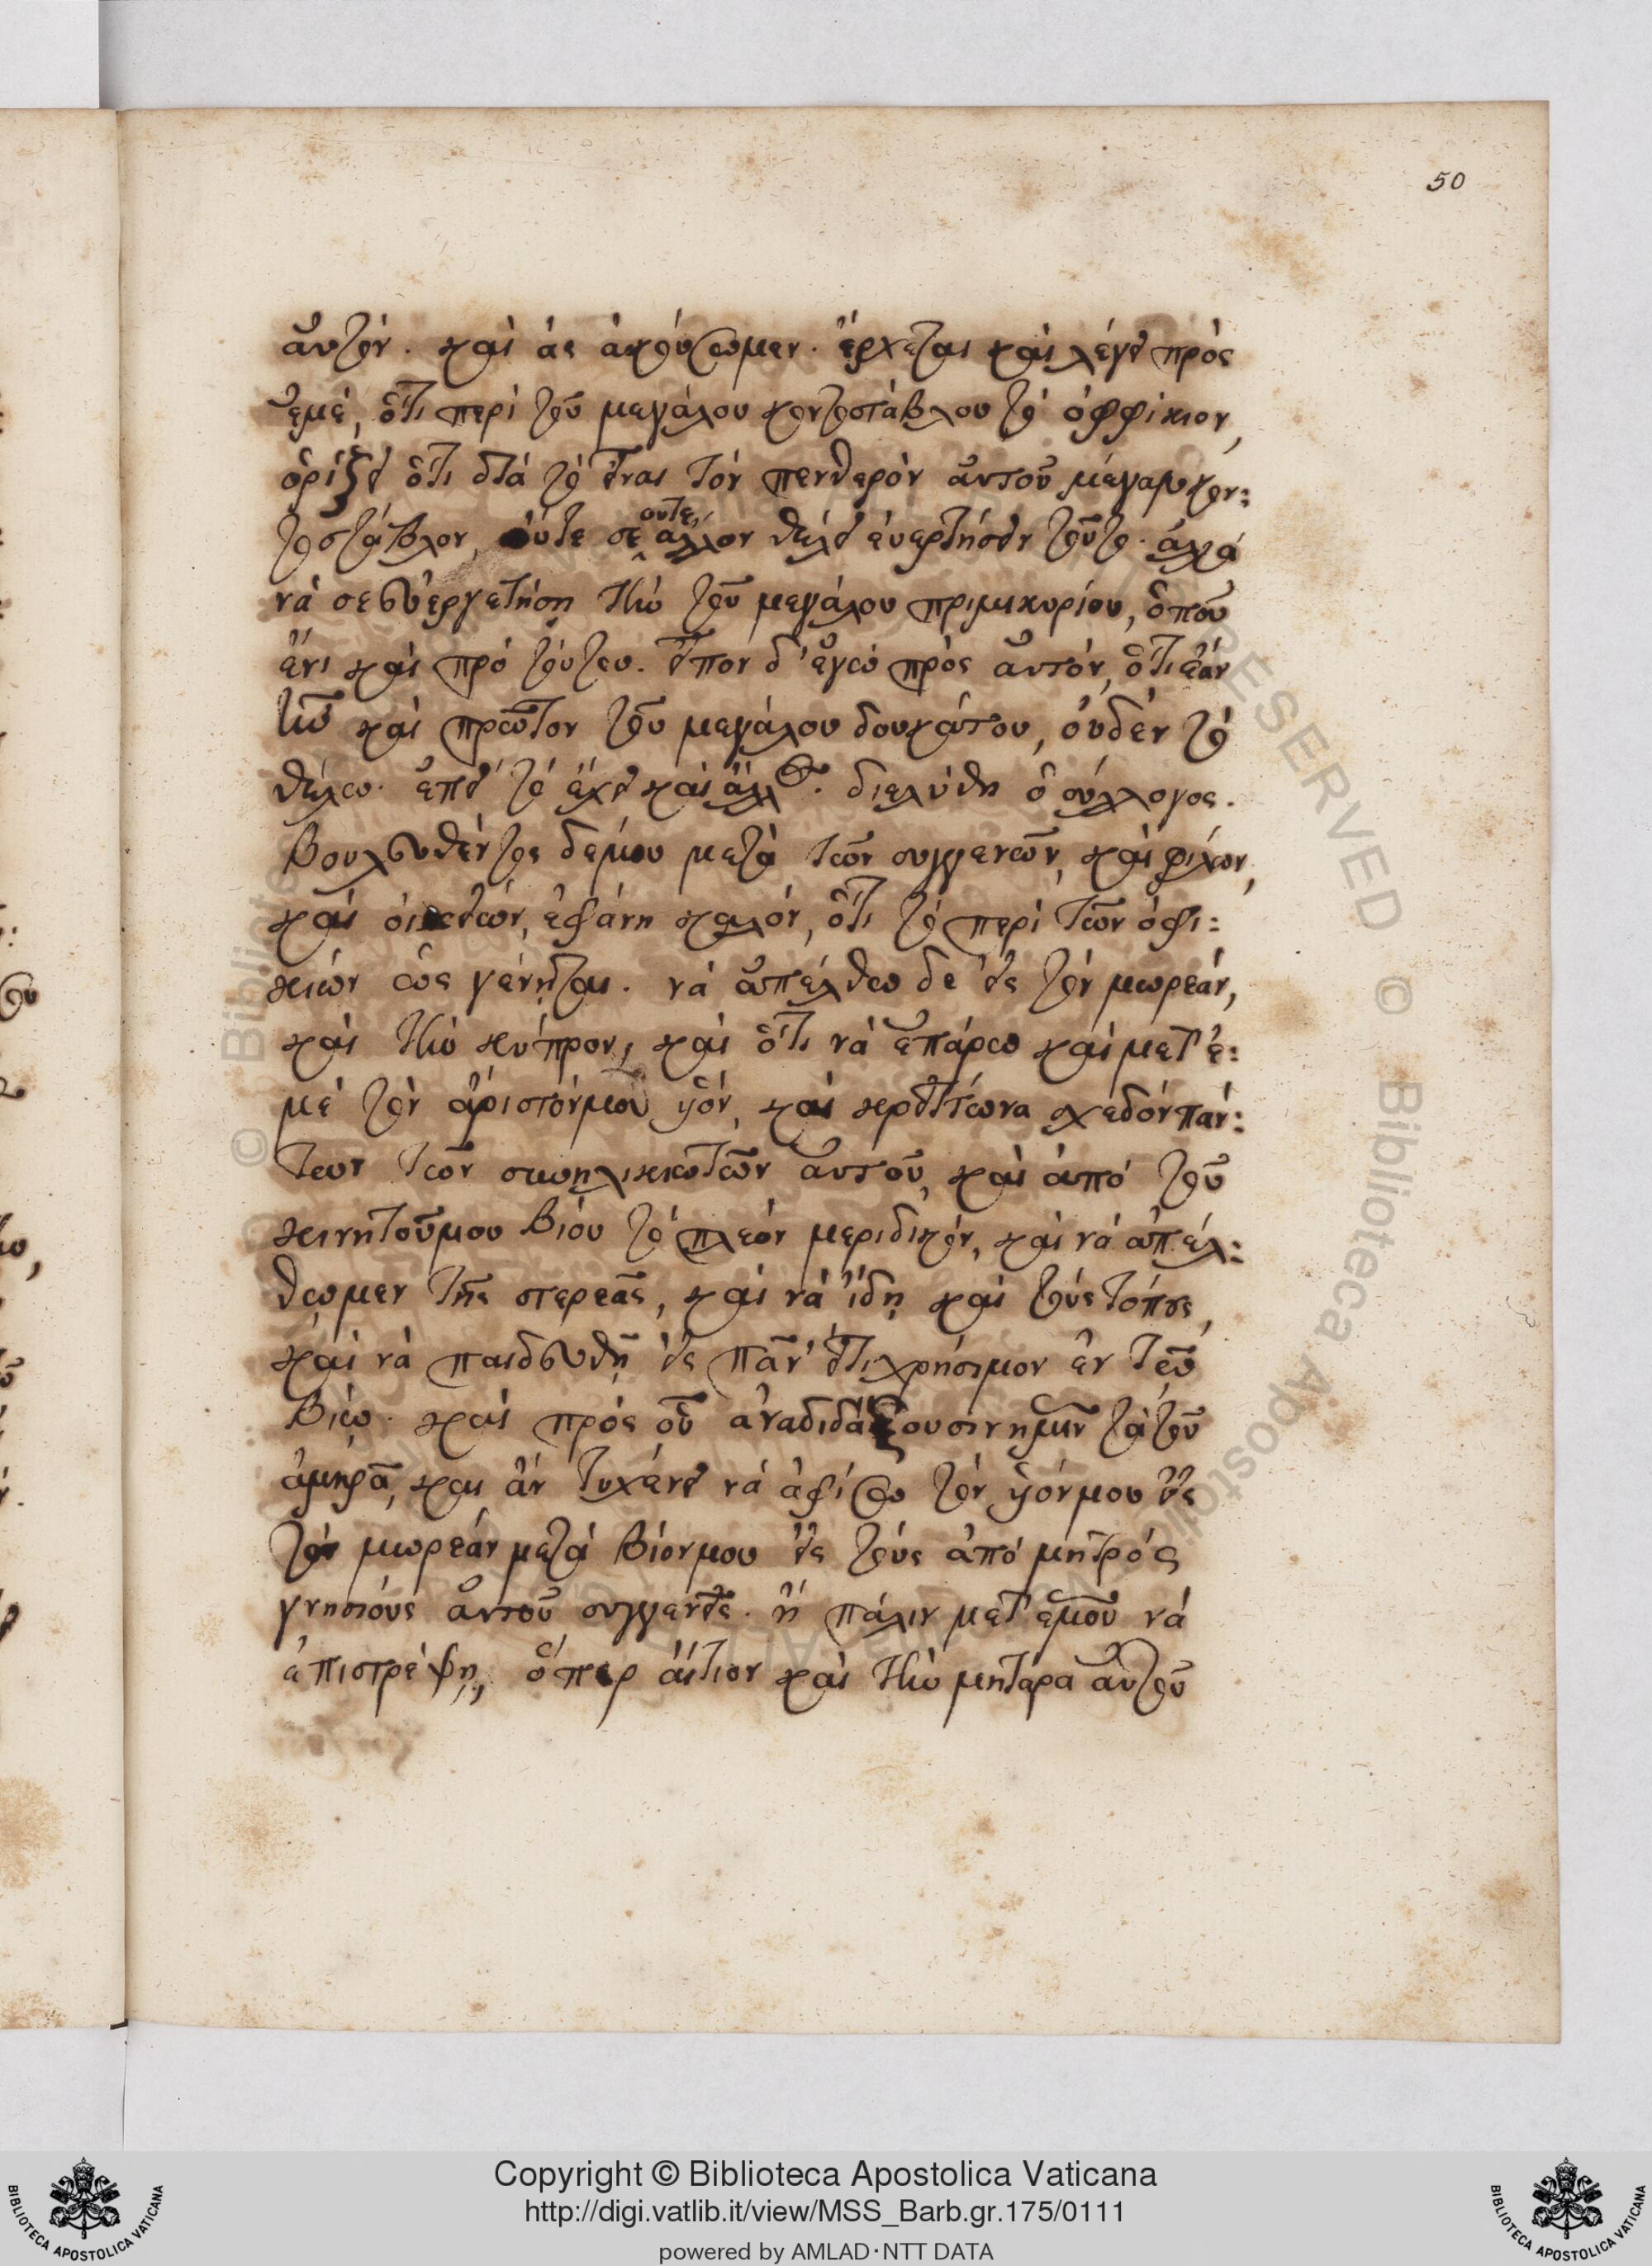 50
αὐτόν. καὶ ἂς ἀκούσωμεν. ἔρχεται καὶ λέγει πρὸς
ἐμέ, ὅτι περὶ τοῦ μεγάλου κοντοστάβλου τὸ ὀφφίκιον,
ὁρίζει ὅτι διὰ τὸ εἶναι τὸν πενθερὸν αὐτοῦ μέγαν κον:
τοστάβλον, οὔτε σὲ οὔτε ἄλλον θέλει εὐεργετήσειν τοῦτο. ἀλλὰ
νὰ σὲ εὐεργετήση τὴν τοῦ μεγάλου πριμικυρίου, ὁποῦ
ἔνι καὶ πρὸ τούτου. εἶπον δ' ἐγὼ πρὸς αὐτόν, ὅτι ἐὰν
ἦν καὶ πρῶτον τοῦ μεγάλου δουκάτου, οὐδὲν τὸ
θέλω. ἐπεὶ τὸ ἔχει καὶ ἄλλος. διελύθη ὁ σύλλογος.
Βουλευθέντος δέ μου μετὰ τῶν συγγενῶν, καὶ φίλων,
καὶ οἰκείων, ἐφάνη καλόν, ὅτι τὸ περὶ τῶν ὀφι:
κίων ὡς γένηται. νὰ ἀπέλθω δὲ εἰς τὸν μωρέαν,
καὶ τὴν κύπρον, καὶ ὅτι νὰ ἐπάρω καὶ μετ' ἐ:
μὲ τὸν ἄριστόν μου υἱόν, καὶ κρείττωνα σχεδὸν πάν:
των τῶν συνηλικιωτῶν αὐτοῦ, καὶ ἀπὸ τοῦ
κινητοῦ μου βίου τὸ πλέον μερίδικον, καὶ νὰ ἀπέλ:
θωμεν τῆς στερεᾶς, καὶ νὰ ἴδη καὶ τοὺς τόπους,
καὶ νὰ παιδευθῆ εἰς πᾶν εἴτι χρήσιμον ἐν τῶ
βίω. καὶ πρὸς οὗ ἀναδιδάξουσιν ἡμῖν τὰ τοῦ
ἀμηρᾶ, καὶ ἂν τυχένει νὰ ἀφίσω τὸν υἱόν μου εἰς
τὸν μωρέαν μετὰ βίον μου εἰς τοὺς ἀπὸ μητρὸς
γνησίους αὐτοῦ συγγενεῖς. ἢ πάλιν μετ' ἐμοῦ νὰ
ἐπιστρέψη, ὅπερ αἴτιον καὶ τὴν μητέρα αὐτοῦ
Copyright © Biblioteca Apostolica Vaticana
http://digi.vatlib.it/view/MSS_Barb.gr.175/0111
powered by AMLAD·NTT DATA